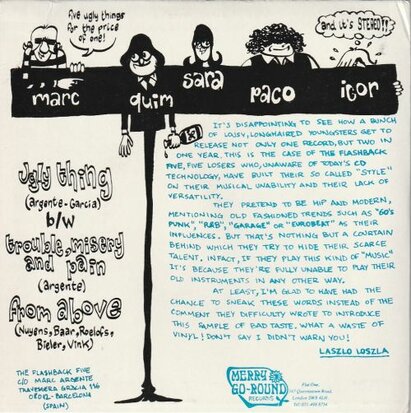 five ugly things
for the price
of one!
and it's STEREO!!
marc
quim
sara
paco
igor
13
ugly thing
(argente-Garcia)
b/w
trouble, misery
and pain
(argente)
from above
(Nuyens, Baar, Roelofs,
Bieler, Vink)
THE FLASHBACK FIVE
C/O MARC ARGENTE
TRAVESSERA GRACIA 116
08012-BARCELONA
(SPAIN)
IT'S DISAPPOINTING TO SEE HOW A BUNCH
OF LOUSY, LONGHAIRED YOUNGSTERS GET TO
RELEASE NOT ONLY ONE RECORD, BUT TWO IN
ONE YEAR. THIS IS THE CASE OF THE FLASHBACK
FIVE, FIVE LOSERS WHO, UNAWARE OF TODAY'S CD
TECHNOLOGY, HAVE BUILT THEIR SO CALLED "STYLE"
ON THEIR MUSICAL UNABILITY AND THEIR LACK OF
VERSATILITY.
THEY PRETEND TO BE HIP AND MODERN,
MENTIONING OLD FASHIONED TRENDS SUCH AS "60'S
PUNK", "R&B", "GARAGE" OR "EUROBEAT" AS THEIR
INFLUENCES. BUT THAT'S NOTHING BUT A COURTAIN
BEHIND WHICH THEY TRY TO HIDE THEIR SCARCE
TALENT. INFACT, IF THEY PLAY THIS KIND OF "MUSIC"
IT'S BECAUSE THEY'RE FULLY UNABLE TO PLAY THEIR
OLD INSTRUMENTS IN ANY OTHER WAY.
AT LEAST, I'M GLAD TO HAVE HAD THE
CHANCE TO SNEAK THESE WORDS INSTEAD OF THE
COMMENT THEY DIFFICULTY WROTE TO INTRODUCE
THIS SAMPLE OF BAD TASTE. WHAT A WASTE OF
VINYL! DON'T SAY I DIDN'T WARN YOU!
LASZLO LOSZLA
MERRY
GO-ROUND
RECORDS
Flat One
London SW8